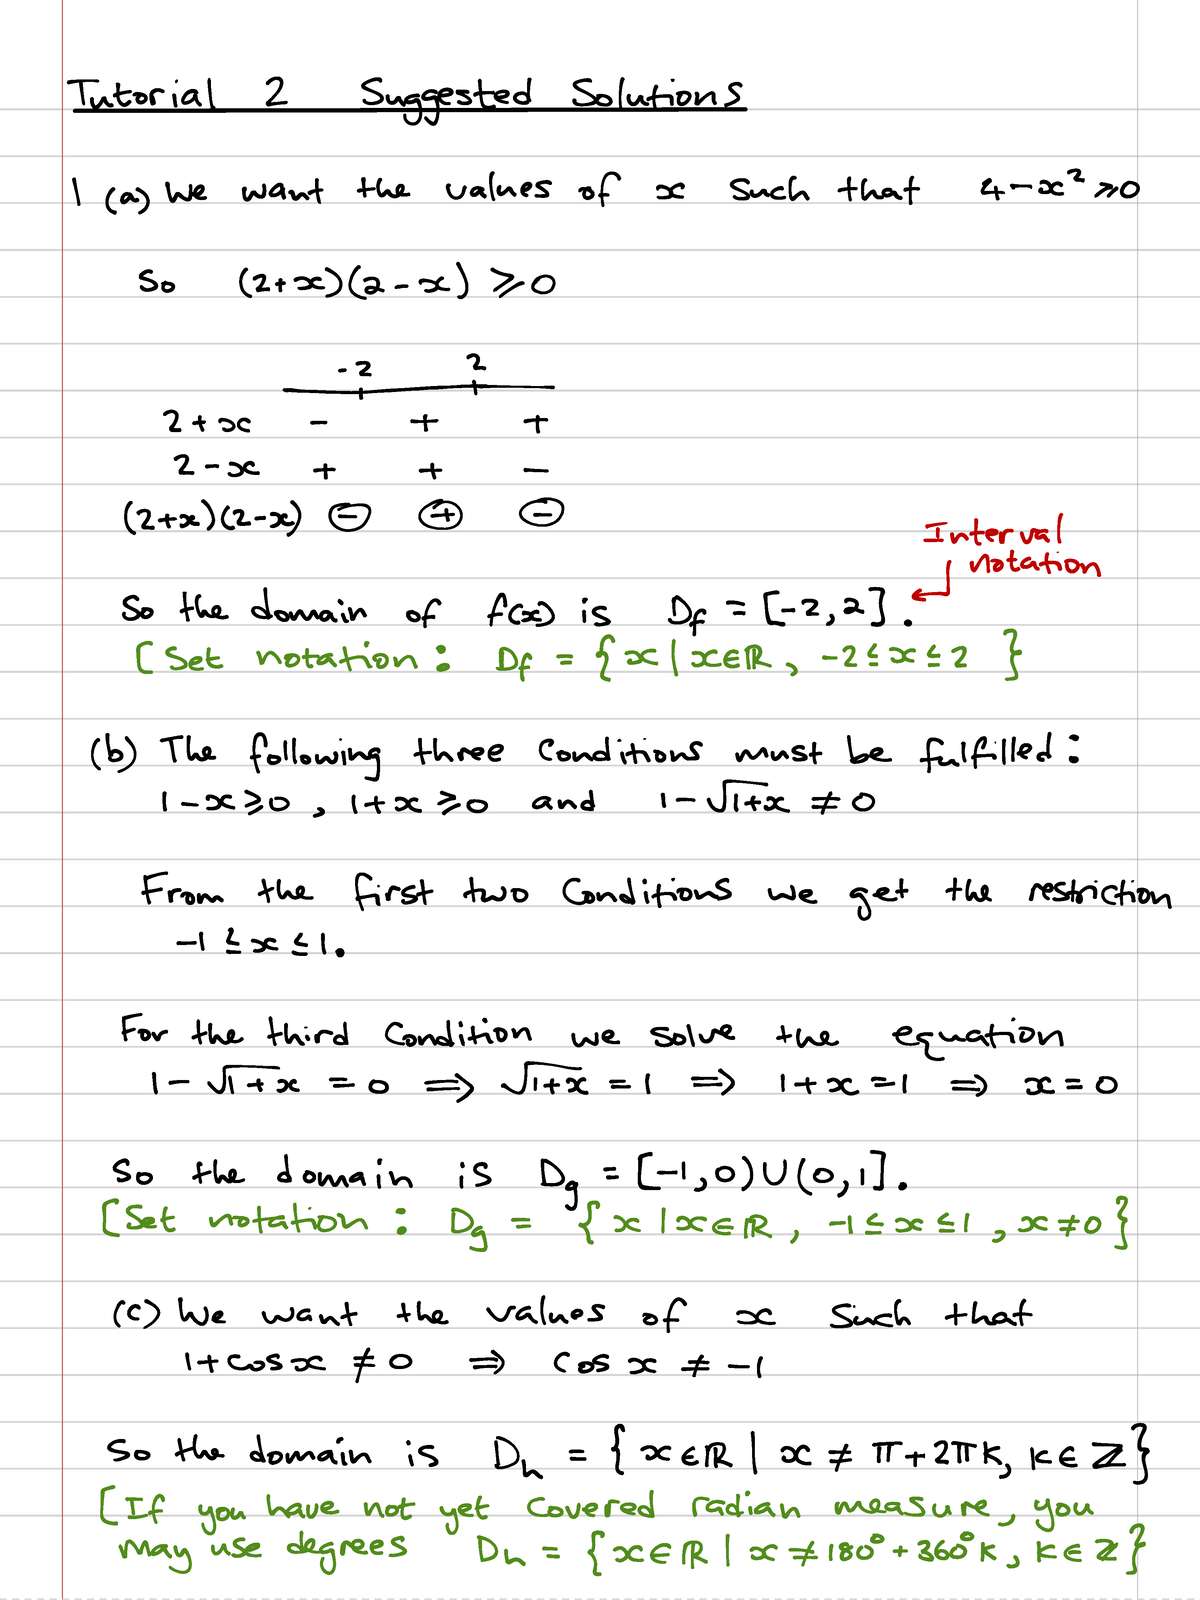 Tutorial 2 Suggested Solutions
1 (a) We want the values of x such that 4-x² ≥0
So (2+x)(2-x) ≥0
-2 2
2+x - + +
2-x + + -
(2+x)(2-x) ⊖ ⊕ ⊖
Interval
notation
So the domain of f(x) is Df = [-2,2].
[Set notation: Df = {x|x∈ℝ, -2≤x≤2 }
(b) The following three conditions must be fulfilled:
1-x≥0, 1+x≥0 and 1-√1+x ≠0
From the first two conditions we get the restriction
-1≤x≤1.
For the third condition we solve the equation
1-√1+x =0 ⇒ √1+x =1 ⇒ 1+x=1 ⇒ x=0
So the domain is Dg = [-1,0)∪(0,1].
[Set notation: Dg = {x|x∈ℝ, -1≤x≤1, x≠0}
(c) We want the values of x such that
1+cosx ≠0 ⇒ cos x ≠ -1
So the domain is Dh = {x∈ℝ | x ≠ π+2πk, k∈ℤ}
[If you have not yet covered radian measure, you
may use degrees Dh = {x∈ℝ | x≠180°+360°k, k∈ℤ}